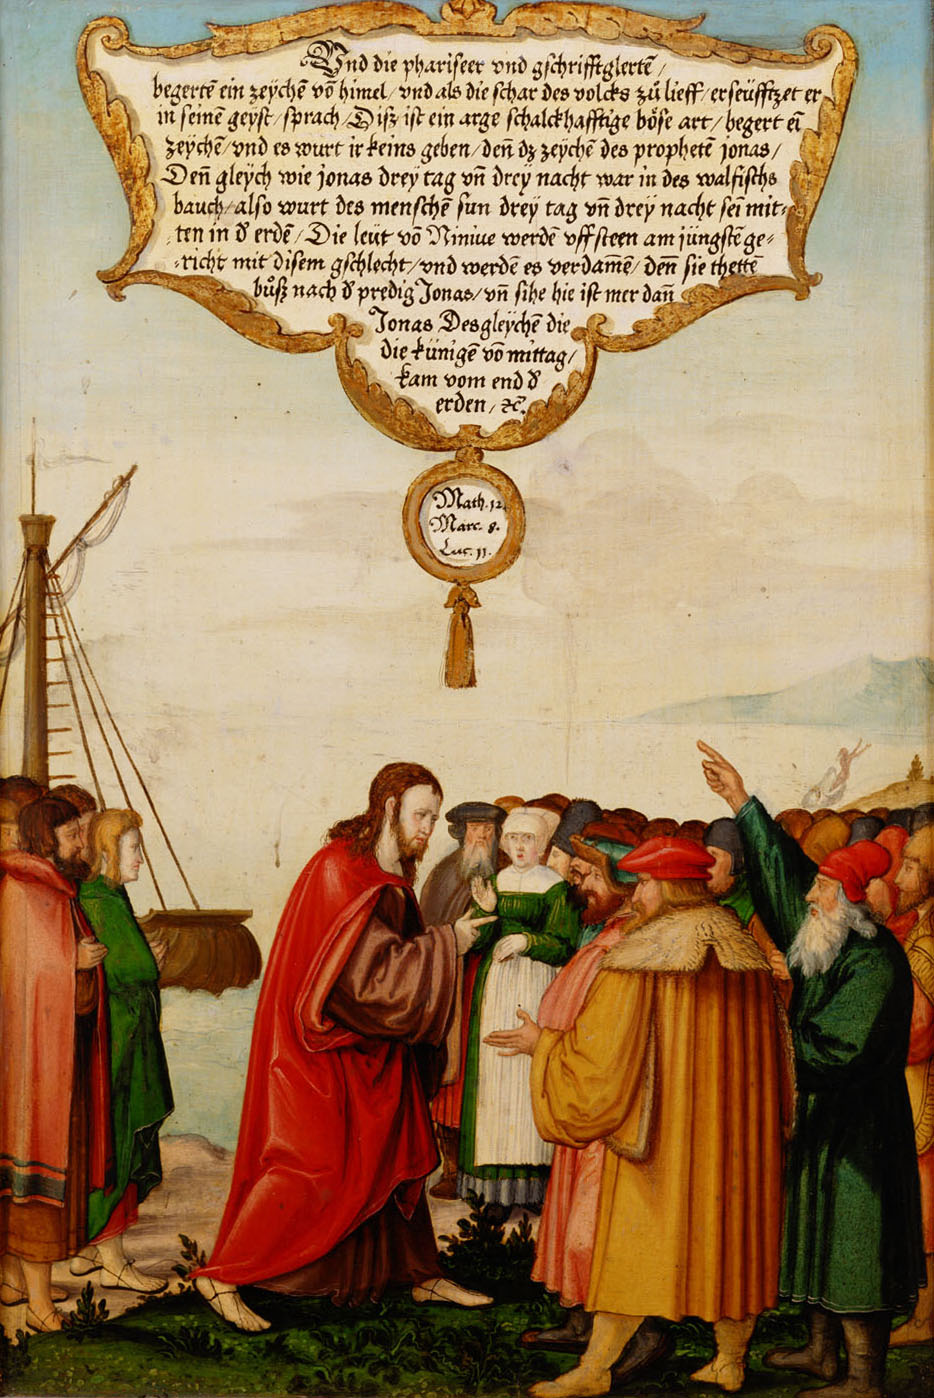 Vnd die phariseer vnd gschrifftglertē /
begertē ein zeÿchē vō himel / vnd als die schar des volcks zů lieff / erseüfftzet er
in seinē geÿst / sprach / Disz ist ein arge schalckhafftige bőse art / begert eī
zeÿchē / vnd es wurt ir keins geben / den̄ dz zeÿchē des prophetē jonas /
Den̄ gleÿch wie jonas dreÿ tag vn̄ dreÿ nacht war in des walfischs
bauch / also wurt des menschē sun dreÿ tag vn̄ dreÿ nacht sei͞n mit⸗
ten in d̕ erdē / Die leüt vō Niniue werdē vffsteen am jüngstē ge⸗
richt mit disem gschlecht / vnd werdē es verdam̄ē / den̄ sie thettē
bůsz nach d̕ predig Jonas / vn̄ sihe hie ist mer dan̄
Jonas Desgleÿchē die
die künigē vō mittag /
kam vom end d̕
erden / ꝛc.
Math. 12.
Marc. 8.
Luc. 11.